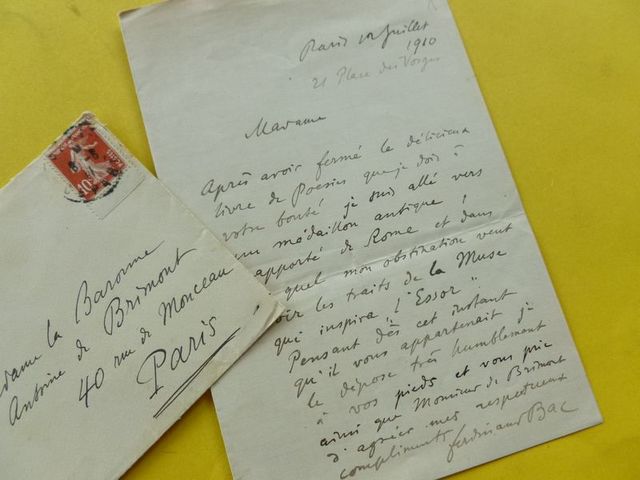 Paris 10 Juillet
1910
21 Place des Vosges
Madame
Après avoir fermé le délicieux
livre de Poesies que je dois à
votre bonté je suis allé vers
un médaillon antique
apporté de Rome et dans
quel mon obstination veut
oir les traits de la Muse
qui inspira "l'Essor".
Pensant dès cet instant
qu'il vous appartenait je
le dépose très humblement
à vos pieds et vous prie
ainsi que Monsieur de Brimont
d'agréer mes respectueux
compliments Ferdinand Bac
10
adame la Baronne
Antoine de Brimont
40 rue de Monceau
Paris